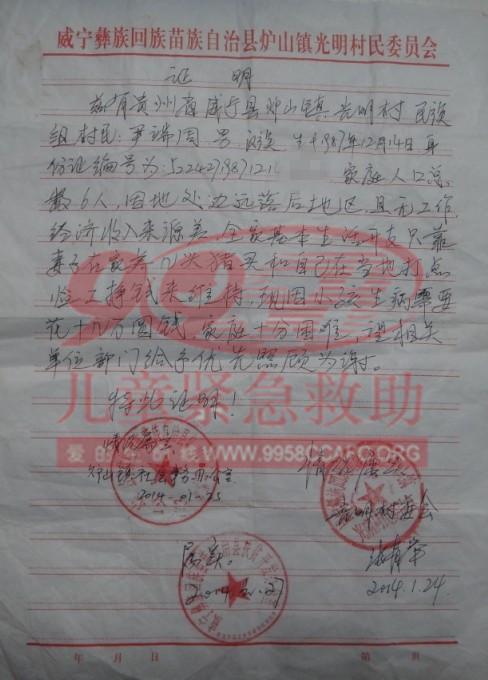 威宁彝族回族苗族自治县炉山镇光明村民委员会
证 明
兹有贵州省威宁县炉山镇光明村民族
组村民:尹端周 男 汉族 生于1987年12月14日 身
份证编号为:52242719871214 家庭人口总
数6人,因地处边远落后地区,且无工作,
经济收入来源差,全家基本生活开支只靠
妻子在家养几头猪卖和自己在当地打点
临工挣钱来维持,现因小孩生病需要
花十几万圆钱,家庭十分困难,望相关
单位部门给予优先照顾为谢。
特此证明!
99
儿童紧急救助
WWW.9958.CAFC.ORG
情况属实
炉山镇社会事务办公室
2014.01.23
情况属实
光明村委会
2014.1.24
属实。
年 月 日
第 页